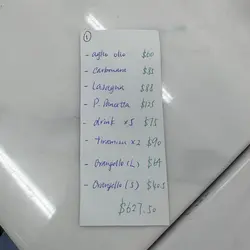 ①
- aglio olio $60
- carbonara $88
- Lasagna $88
- P. Pancetta $225
- drink x5 $75
- tiramisu x2 $90
- Orangello (L) $64
- Orangello (S)
$627.50